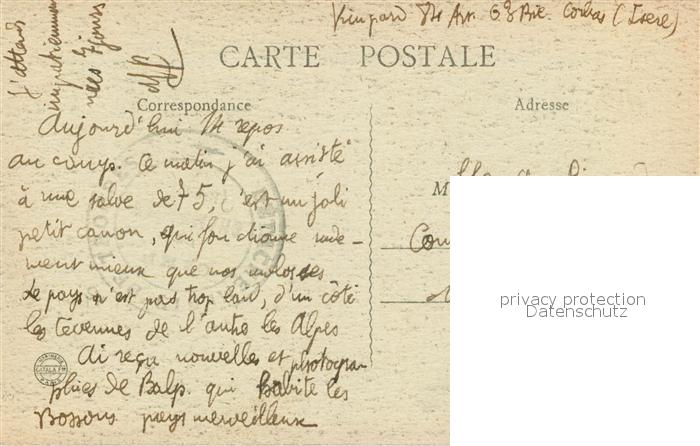 Vinpard 54 Art. 63 Bie. Corbas (Isère)
J'attends
impatiemment
mes 7 jours
CARTE POSTALE
Correspondance
Adresse
Aujourd'hui 14 repos
au camp. Ce matin j'ai assisté
à une salve de 75, c'est un joli
petit canon, qui fonctionne rude-
ment mieux que nos molosses
Le pays n'est pas trop laid, d'un côté
les Cévennes de l'autre les Alpes
Ai reçu nouvelles et photogra-
phies de Balp. qui habite les
Bossons pays merveilleux
M
privacy protection
Datenschutz